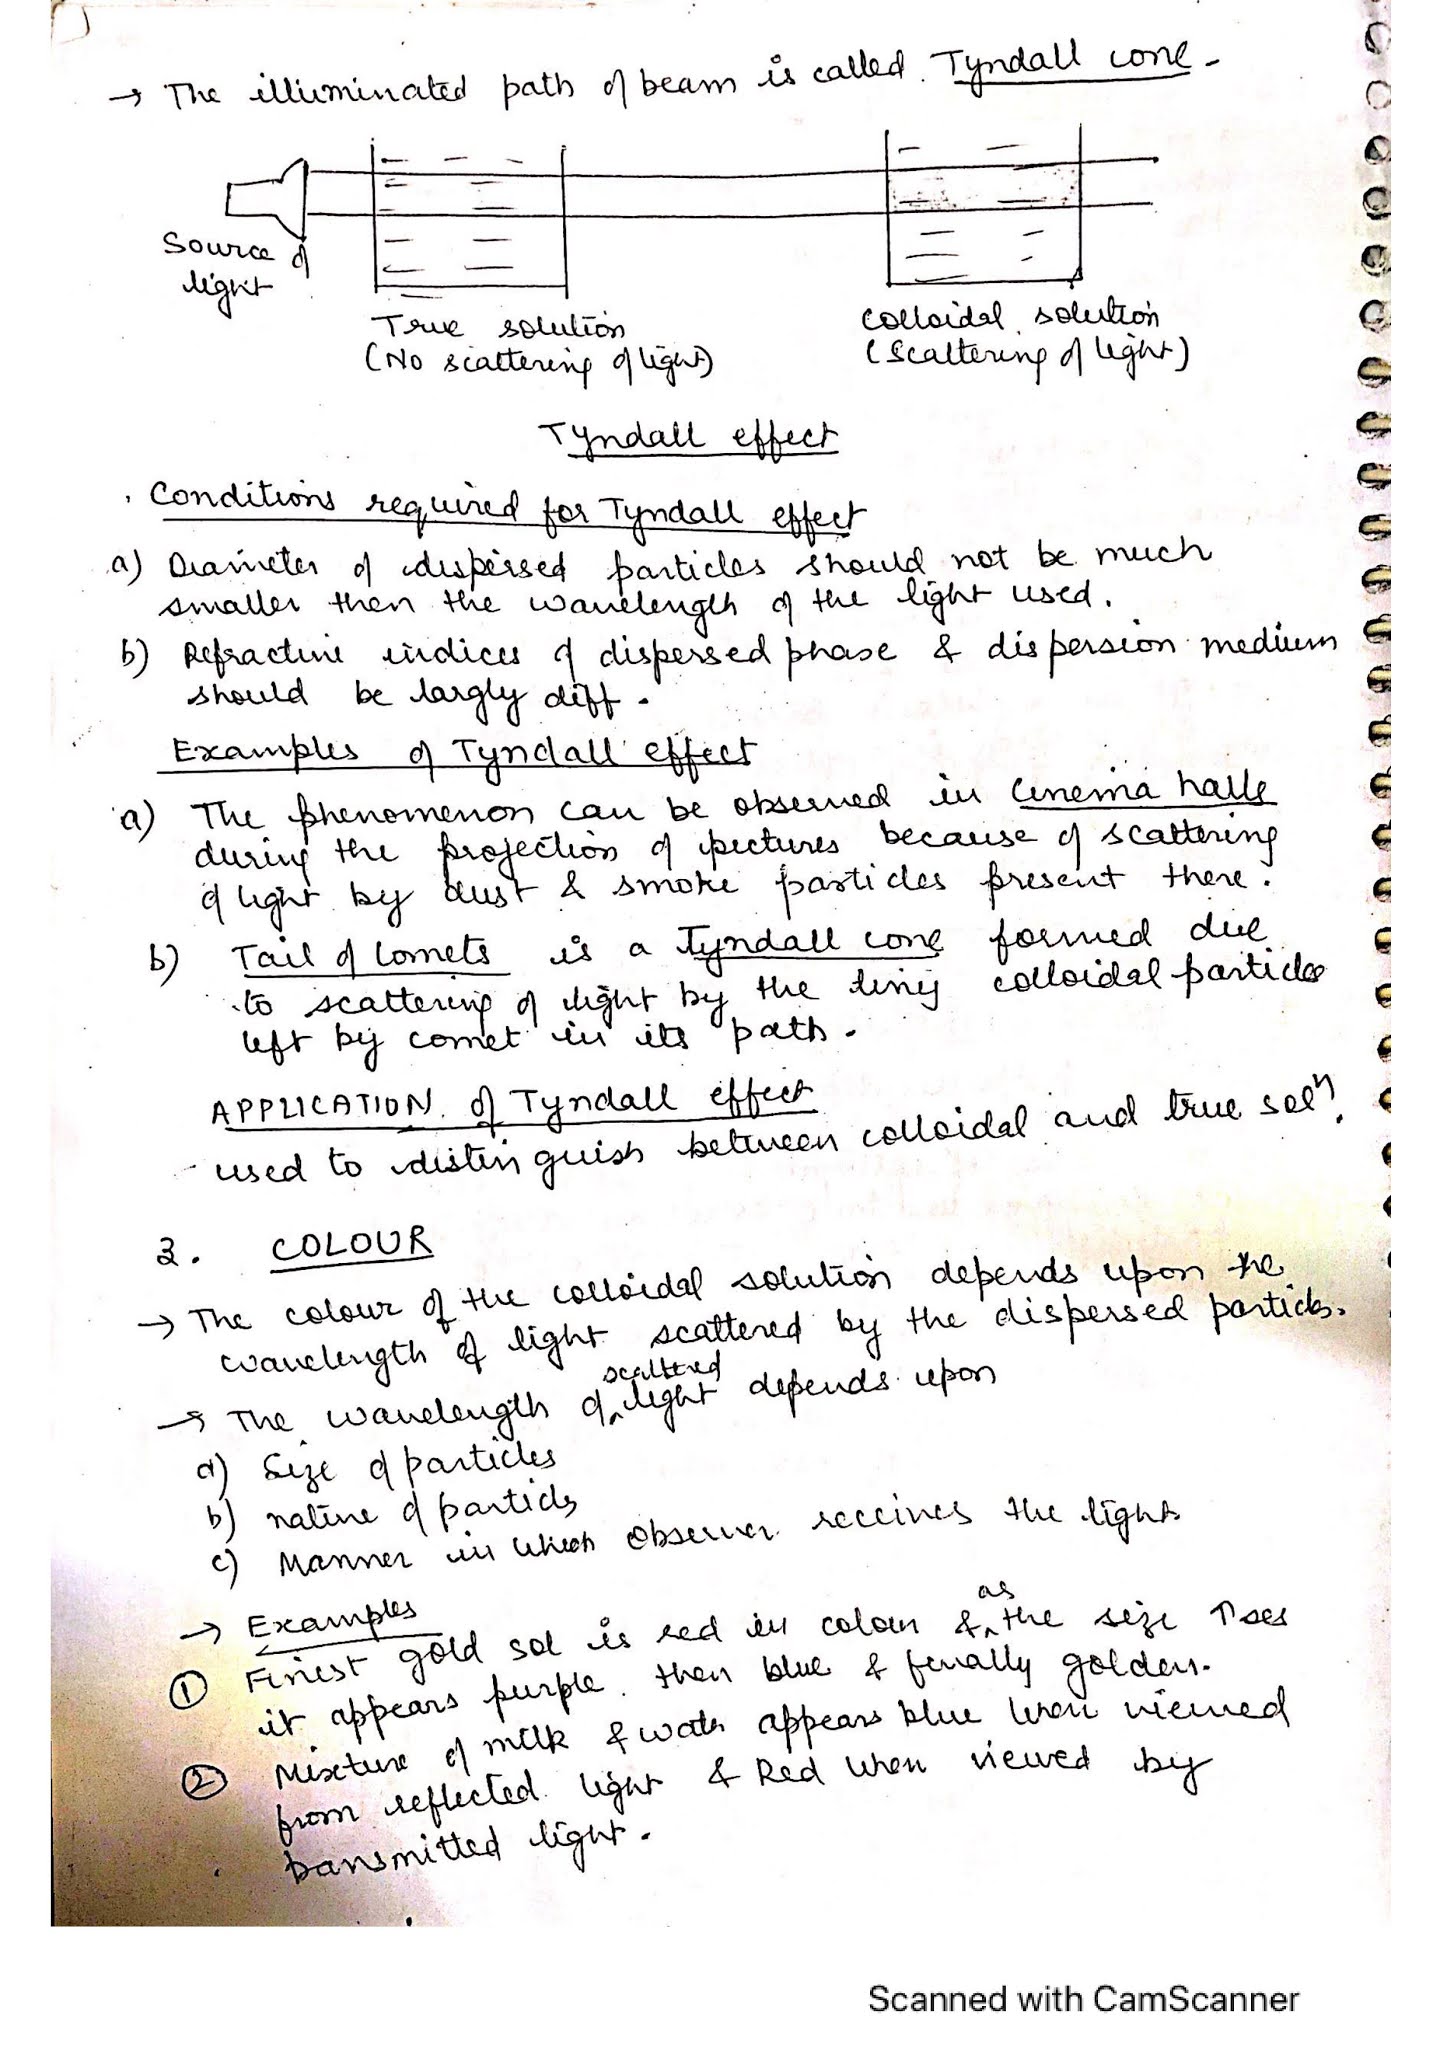 → The illuminated path of beam is called Tyndall cone -
Source of
light
True solution
(No scattering of light)
colloidal solution
(Scattering of light)
Tyndall effect
Conditions required for Tyndall effect
a) Diameter of dispersed particles should not be much
smaller then the wavelength of the light used.
b) Refractive indices of dispersed phase & dispersion medium
should be largly diff.
Examples of Tyndall effect
a) The phenomenon can be observed in cinema halls
during the projection of pictures because of scattering
of light by dust & smoke particles present there.
b) Tail of comets is a Tyndall cone formed due
to scattering of light by the tiny colloidal particles
left by comet in its path.
APPLICATION of Tyndall effect
used to distinguish between colloidal and true solⁿ.
2. COLOUR
→ The colour of the colloidal solution depends upon the
wavelength of light scattered by the dispersed particles.
→ The wavelength of scattered light depends upon
a) Size of particles
b) nature of particles
c) Manner in which observer receives the light
→ Examples
① Finest gold sol is red in colour & as the size ↑ses
it appears purple then blue & finally golden.
② Mixture of milk & water appears blue when viewed
from reflected light & Red when viewed by
transmitted light.
Scanned with CamScanner